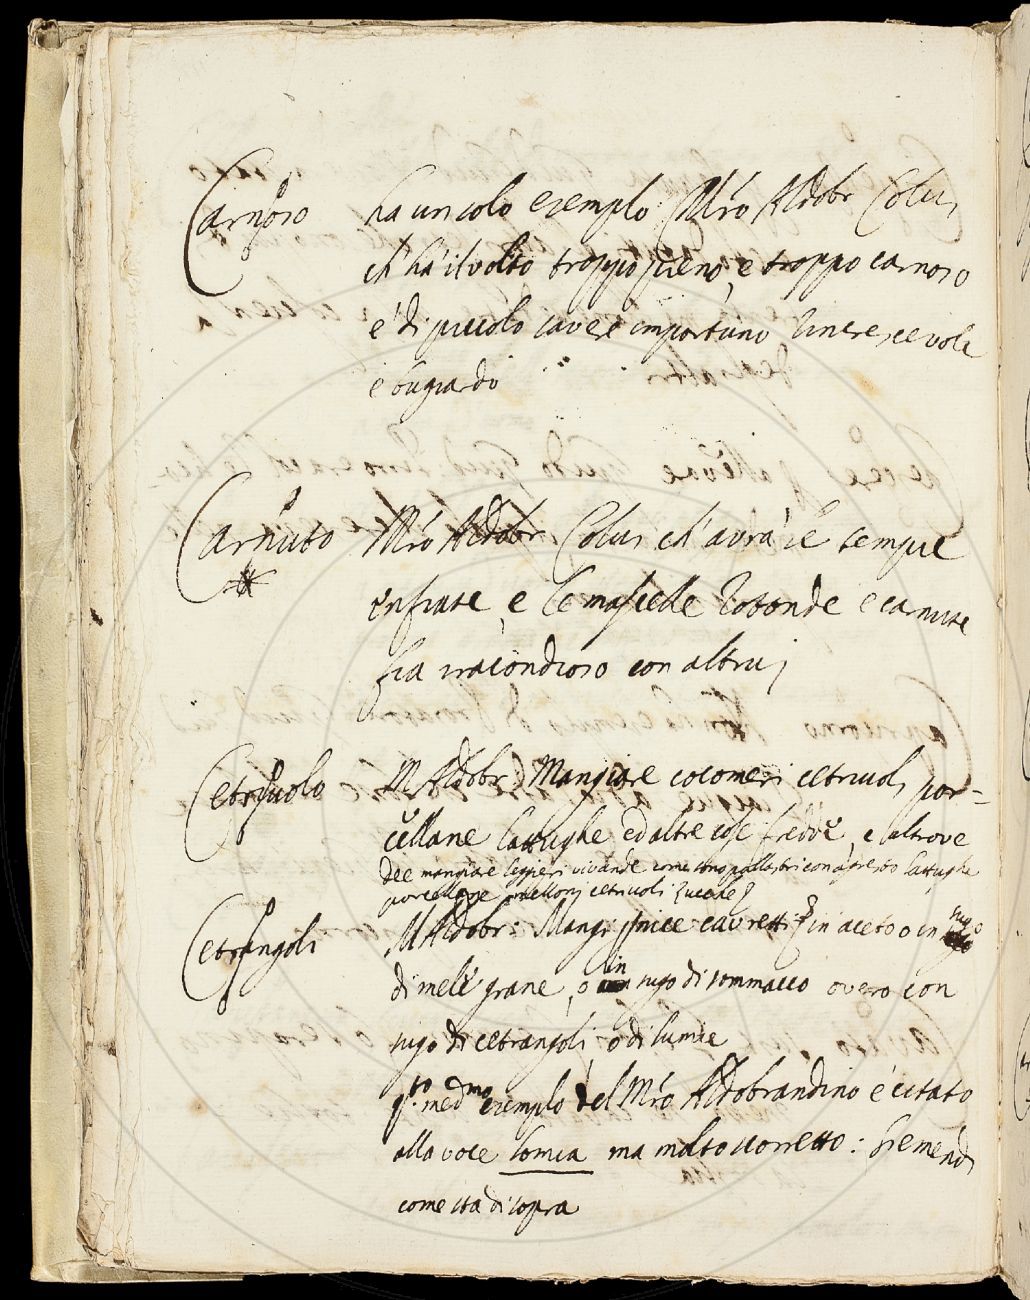 Carnoso ha un solo esempio Mro Aldobr Colui
ch'ha il volto troppo pieno, e troppo carnoso
e' di piccolo savere importuno increscevole
e bugiardo
Carnuto Mro Aldobr Colui ch'avrà le tempie
enfiate, e le mascelle ritonde e carnute
fia iracondioso con altrui
Cetriuolo M Aldobr. Mangiare cocomeri cetriuoli por=
cellane lattughe ed altre cose fredde, e altrove
dee mangiare leggieri vivande come sono pollastri con agresto lattughe
porcellane melloni cetriuoli zucche
Cetrangoli M Aldobr. Mangi cavretti in aceto o in sugo
di mele grane, o in sugo di sommacco overo con
sugo di cetrangoli, o di lumie
qto medmo esempio del Mro Aldobrandino è citato
alla voce lomia ma molto scorretto: si emendi
come sta di sopra